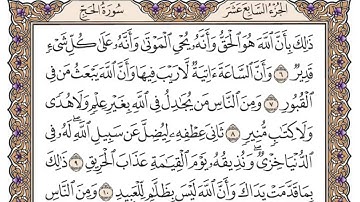 الجزء السابع عشر سورة الحج
ذَٰلِكَ بِأَنَّ ٱللَّهَ هُوَ ٱلْحَقُّ وَأَنَّهُۥ يُحْىِ ٱلْمَوْتَىٰ وَأَنَّهُۥ عَلَىٰ كُلِّ شَىْءٍ
قَدِيرٌ ٦ وَأَنَّ ٱلسَّاعَةَ ءَاتِيَةٌ لَّا رَيْبَ فِيهَا وَأَنَّ ٱللَّهَ يَبْعَثُ مَن فِى
ٱلْقُبُورِ ٧ وَمِنَ ٱلنَّاسِ مَن يُجَٰدِلُ فِى ٱللَّهِ بِغَيْرِ عِلْمٍ وَلَا هُدًى
وَلَا كِتَٰبٍ مُّنِيرٍ ٨ ثَانِىَ عِطْفِهِۦ لِيُضِلَّ عَن سَبِيلِ ٱللَّهِ لَهُۥ فِى
ٱلدُّنْيَا خِزْىٌ وَنُذِيقُهُۥ يَوْمَ ٱلْقِيَٰمَةِ عَذَابَ ٱلْحَرِيقِ ٩ ذَٰلِكَ
بِمَا قَدَّمَتْ يَدَاكَ وَأَنَّ ٱللَّهَ لَيْسَ بِظَلَّٰمٍ لِّلْعَبِيدِ ١٠ وَمِنَ ٱلنَّاسِ